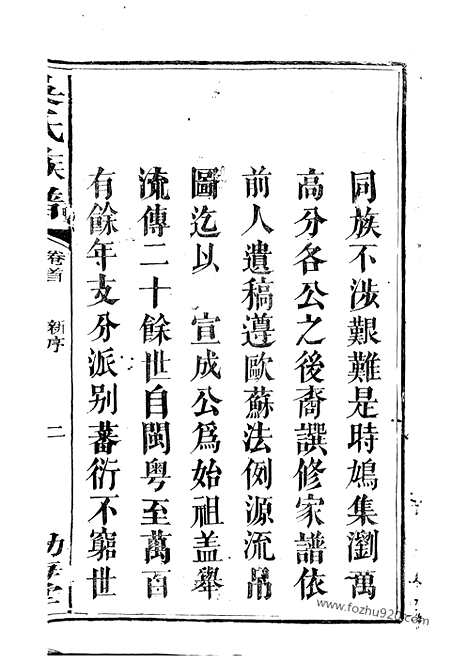 同族不涉艱難是時鳩集瀏萬
高分各公之後裔譔修家譜依
前人遺稿遵歐蘇法例源流吊
圖迄以 宣成公爲始祖盖舉
流傳二十餘世自閩粤至萬百
有餘年支分派别蕃衍不窮世
氏族譜
卷首 新序 二
堂
www.fozhu920.com